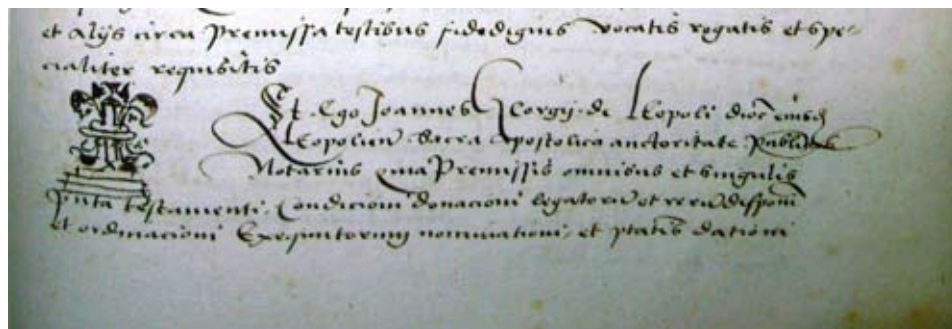 et alijs circa Premissa testibus fidedignis vocatis rogatis et spe=
cialiter requisitis
Et Ego Joannes Georgij de Leopoli dioc eiusd
Leopolien Sacra Apostolica auctoritate Publicus
Notarius quia Premissis omnibus et singulis
testamenti Condicioni donacioni legatorū et rerū disponi
et ordinacioni Exequutorum nominationi et ptatis dationi